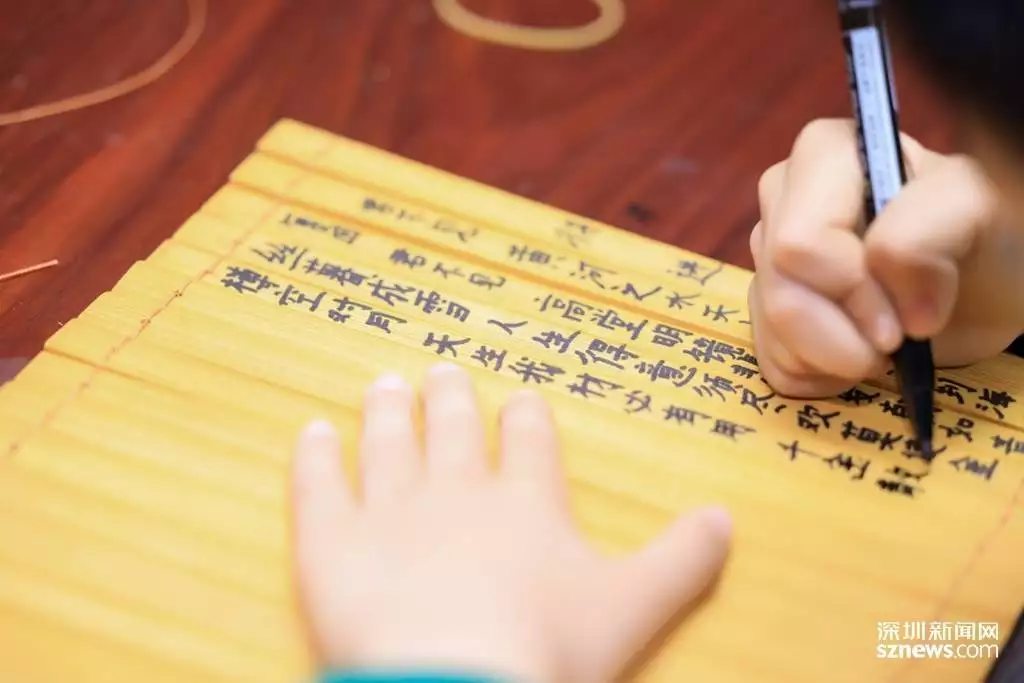 进
君不见 黄河之水天 到海
复回 君不见 高堂明镜 如青
丝暮成雪 人生得意须尽欢 莫使金
樽空对月 天生我材必有用 千金散
深圳新闻网
sznews.com